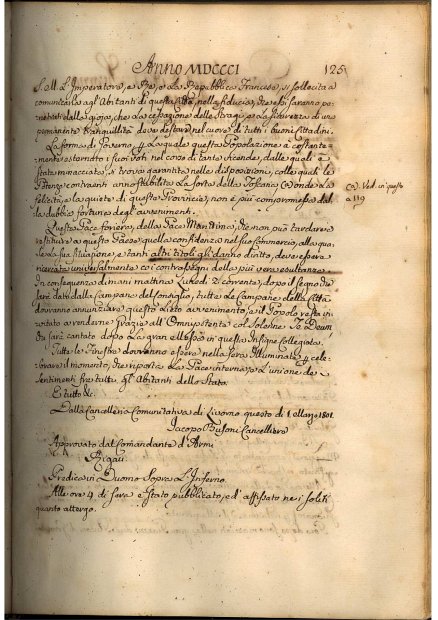 Anno MDCCCI
125
S. M. L'Imperatore, e Re, e La Repubblica Francese, si sollecita a
comunicarla agl'Abitanti di questa Città, nella fiducia, che essi saranno pe-
netrati dalla gioja, che La cessazione delle Stragi, e La sicurezza di una
permanente tranquillità deve destare nel cuore di tutti i buoni Cittadini.
La forma di Governo, per La quale questa Popolazione à costante-
mente esternato i suoi voti nel corso di tante vicende, dalle quali è
stata minacciata, si trova garantita nelle disposizioni, colle quali le
Potenze contraenti anno stabilito La sorte della Toscana, (a) onde La
felicità, e La quiete di questa Provincia, non è più compromessa dal-
la dubbia fortuna degl'avvenimenti.
(a) Ved. in questo
a 119
Questa Pace foriera, della Pace Marittima, che non può tardare a
restituire a questo Paese quella confidenza nel suo Commercio, alla qua-
le La sua situazione, e tanti altri titoli gli danno dritto, deve essere
ricercata universalmente coi contrassegni della più vera esultanza.
In conseguenza dimani mattina Lunedì 2 corrente, dopo il segno che
sarà dato dalla Campana del Consiglio, tutte Le Campane della Città
dovranno annunziare questo Lieto avvenimento, e il Popolo resta in-
vitato a renderne grazie all'Omnipotente col solenne Te Deum
che sarà cantato dopo La gran Messa in questa Insigne Collegiata.
Tutte Le Finestre dovranno essere nella sera Illuminate p. cele-
brare il momento, che riporta La Pace interna, e L'unione de
Sentimenti fra tutti gl'Abitanti dello Stato.
E tutto &c.
Dalla Cancelleria Comunitativa di Livorno questo dì 1. Marzo 1801.
Jacopo Busoni Cancelliere
Approvato dal Comandante d'Armi
Rigau.
Predica in Duomo Sopra L'Inferno.
Alle ore 4 di sera è stato pubblicato, ed affissato ne i soliti
quanto attergo.